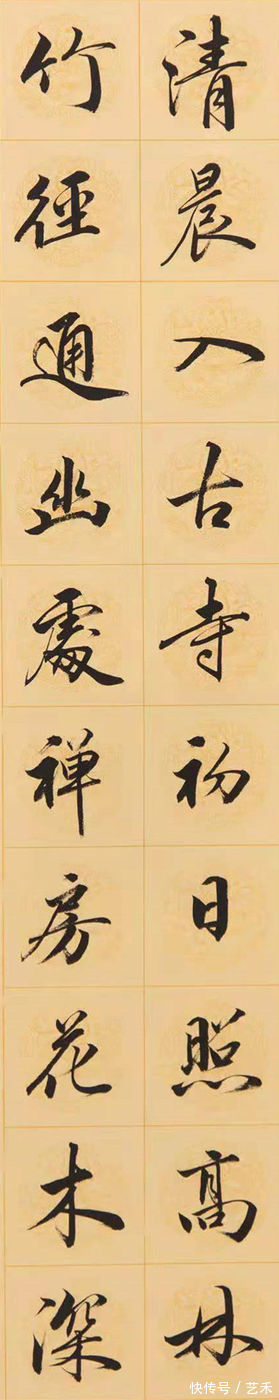 清晨入古寺初日照高林
竹徑通幽處禅房花木深
快传号/艺禾